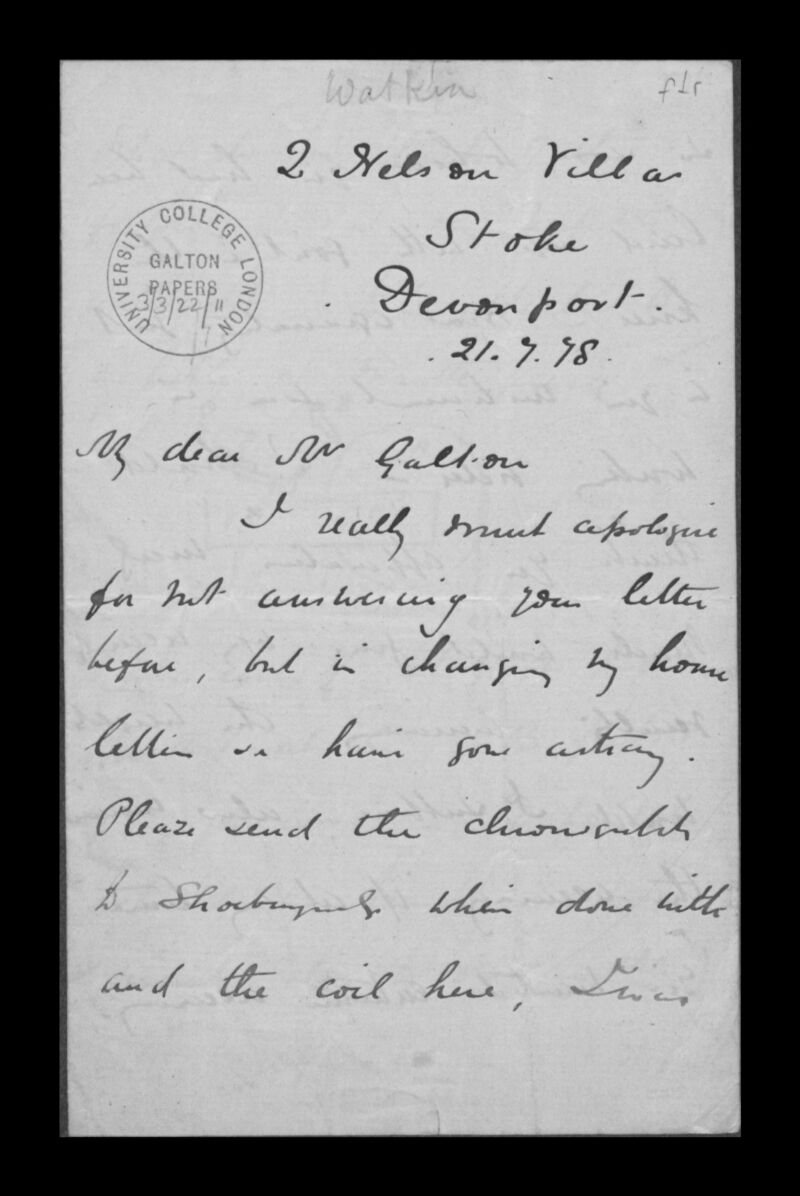 Watkin
f1r
2 Nelson Villas
Stoke
Devonport.
21.7.78.
UNIVERSITY COLLEGE LONDON
GALTON
PAPERS
3/3/22/11
My dear Mr Galton
I really must apologise
for not answering your letter
before, but in changing my home
letters &c have gone astray.
Please send the
to Shoeburyness when done with
and the coil here, I was